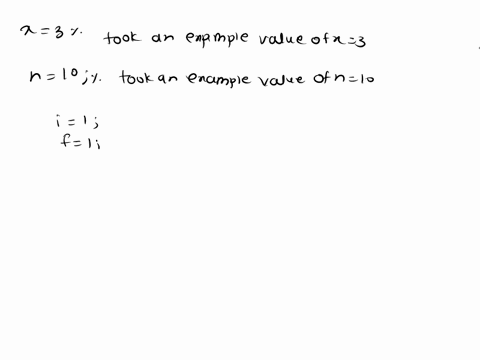 x = 3 % took an example value of x=3
n = 10 ; % took an example value of n=10
i = 1 ;
f = 1 ;